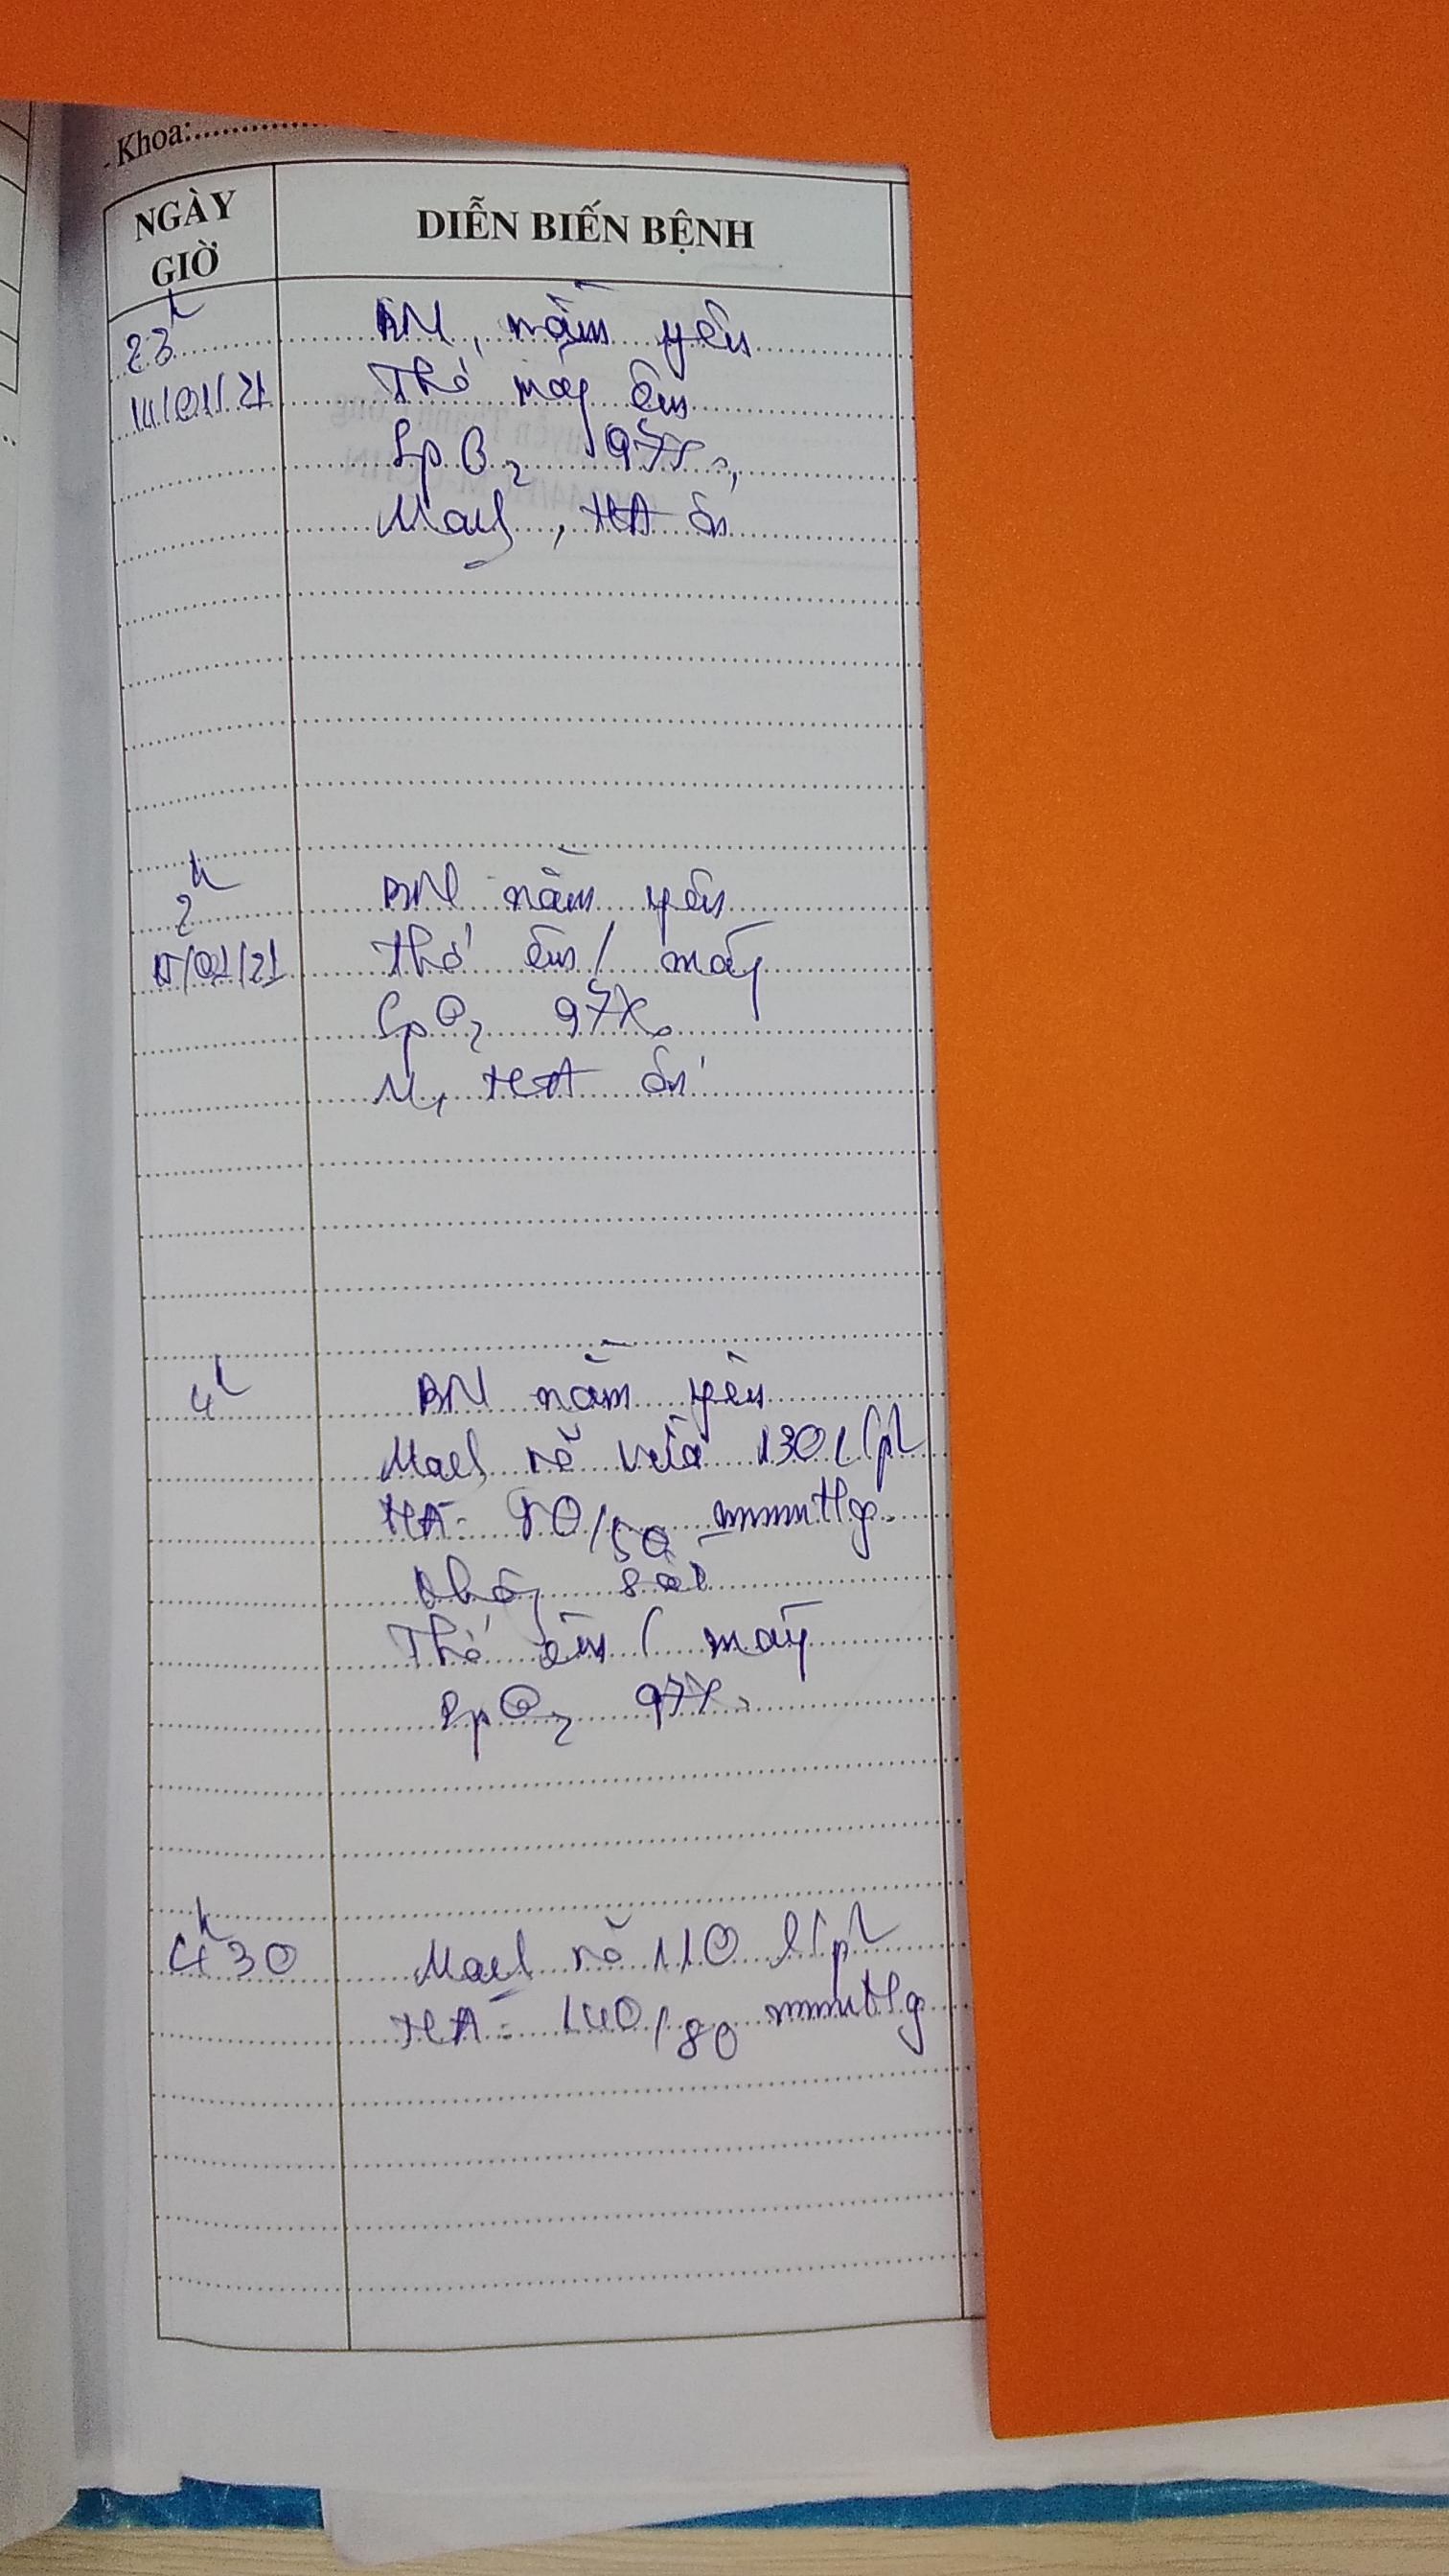 - Khoa:
NGÀY GIỜ
DIỄN BIẾN BỆNH
23h
BN, nằm yên
14/01/21
Thở máy êm
SpO2 97%,
Mạch, HA ổn
2h
BN nằm yên
15/01/21
Thở êm / máy
SpO2 97%
M, HA ổn
4h
BN nằm yên
Mạch rõ vừa 130 l/ph
HA = 80/50 mmHg.
Không sốt
Thở êm / máy
SpO2 97%
4h30
Mạch rõ 110 l/ph
HA = 140/80 mmHg